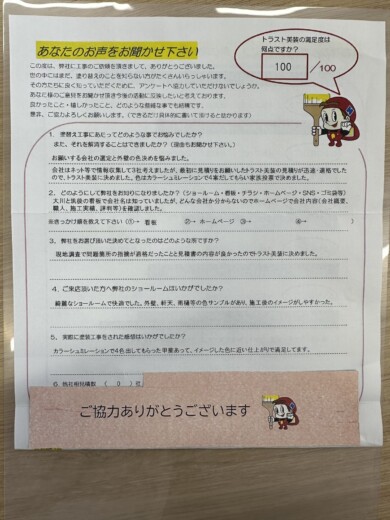 あなたのお声をお聞かせ下さい
トラスト美装の満足度は
何点ですか?
100 /100
この度は、弊社に工事のご依頼を頂きまして、ありがとうございました。
世の中にはまだ、塗り替えのことを知らない方がたくさんいらっしゃいます。
その方たちに良く知っていただくために、アンケートへ協力していただけないでしょうか。
あなた様のご意見をお聞かせ頂き今後の活動に反映したいと考えております。
良かったこと・嬉しかったこと、どのような些細な事でも結構です。
是非、ご協力よろしくお願いします。(できるだけ具体的に書いて頂けると助かります)
1．塗替え工事にあたってどのような事でお悩みでしたか?
また、それを解消することはできましたか?(出来ましたらお聞かせ下さい。)
お願いする会社の選定と外壁の色決めを悩みました。
会社はネット等で情報収集して3社考えましたが、最初に見積りをお願いしたトラスト美装の見積りが迅速・適格でした
ので、トラスト美装に決めました。色はカラーシュミレーションで4案だしてもらい家族投票で決めました。
2．どのようにして弊社をお知りになりましたか?(ショールーム・看板・チラシ・ホームページ・SNS・ゴミ袋等)
大川と筑後の看板で会社名は知っていましたが、どんな会社か分からないのでホームページで会社内容(会社概要、
職人、施工実績、評判等)を確認しました。
※きっかけ順を教えて下さい(①→ 看板 ②→ ホームページ ③→ ④→ )
3．弊社をお選び頂いた決めてとなったのはどのような所ですか?
現地調査で問題箇所の指摘が適格だったことと見積書の内容が良かったのでトラスト美装に決めました。
4．ご来店頂いた方へ弊社のショールームはいかがでしたか?
綺麗なショールームで快適でした。外壁、軒天、雨樋等の色サンプルがあり、施工後のイメージがしやすかった。
5．実際に塗装工事をされた感想はいかがでしたか?
カラーシュミレーションで4色出してもらった甲斐あって、イメージした色に近い仕上がりで満足してます。
6．他社相見積数 ( 0 )社
ご協力ありがとうございます